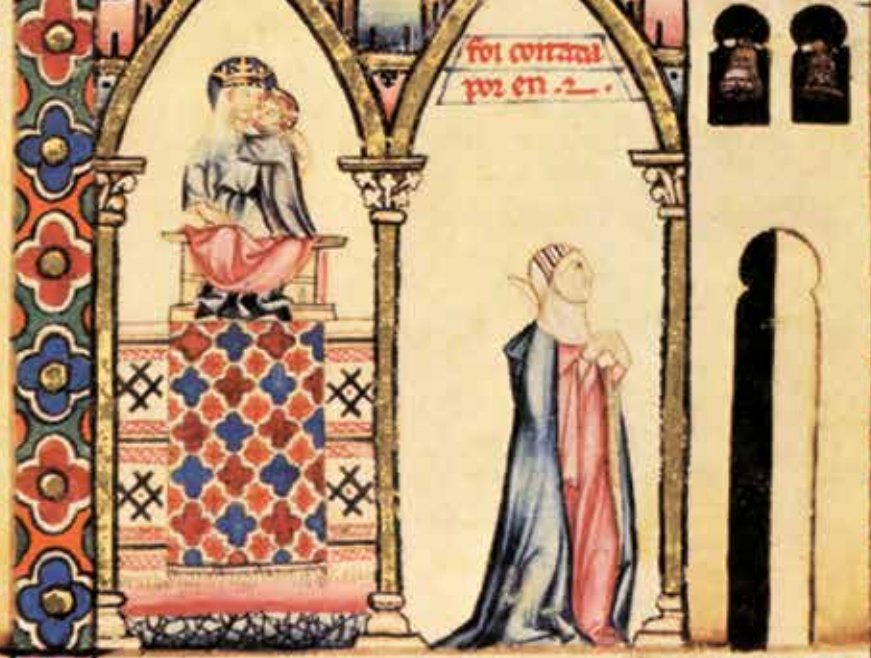 foi contada
por en .2.